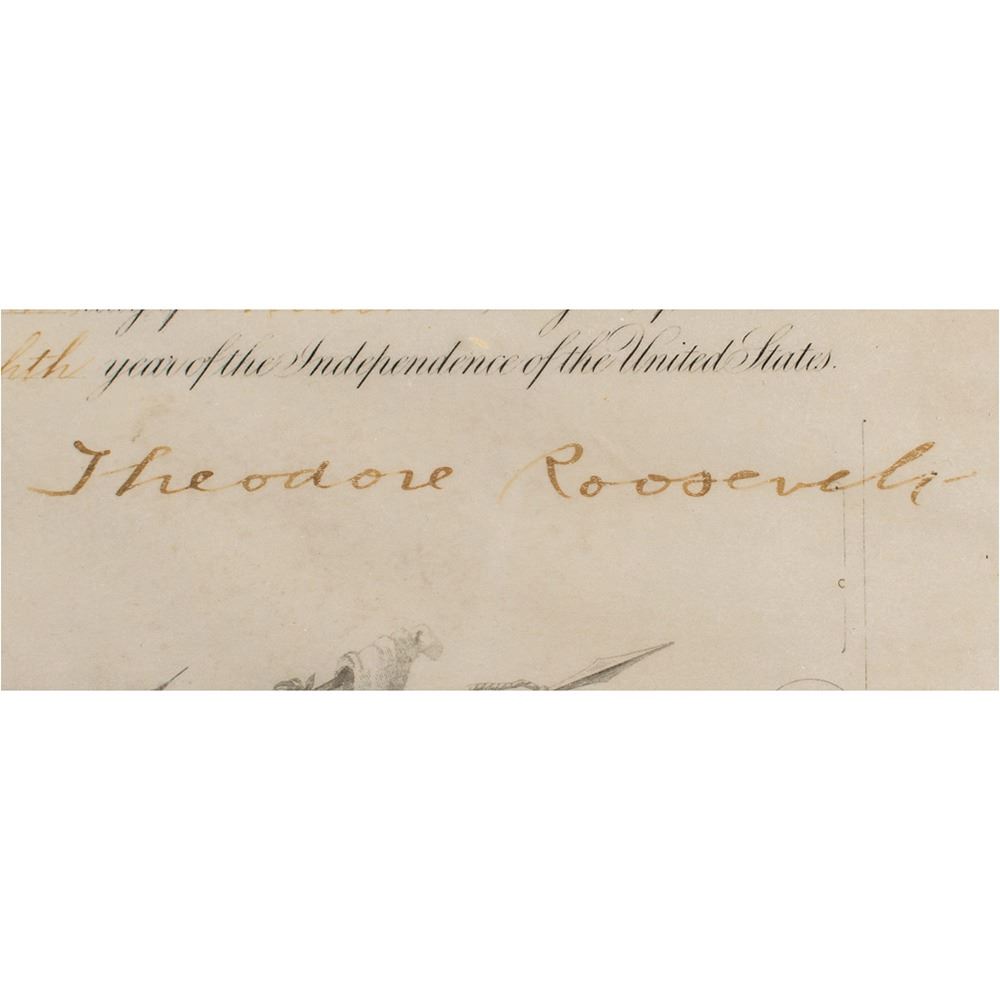 hth year of the Independence of the United States.
Theodore Roosevelt